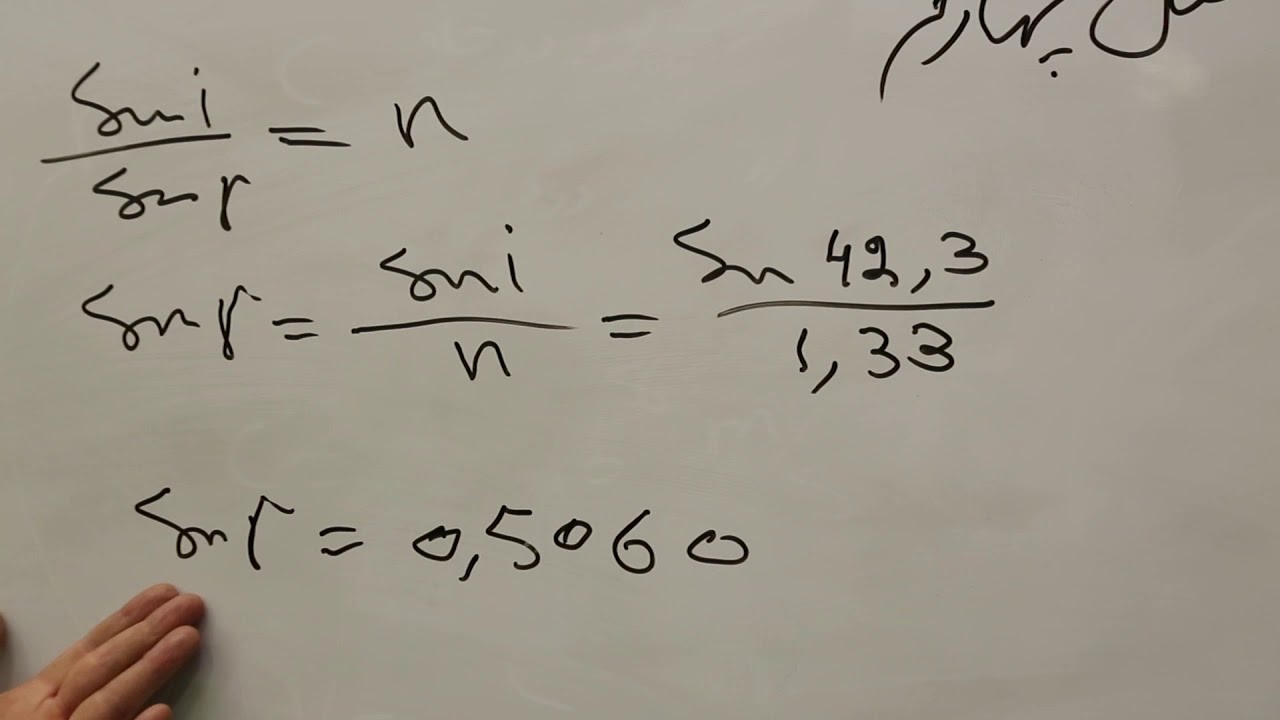 چهارم
sin i / sin r = n
sin r = sin i / n = sin 42,3 / 1,33
sin r = 0,5060